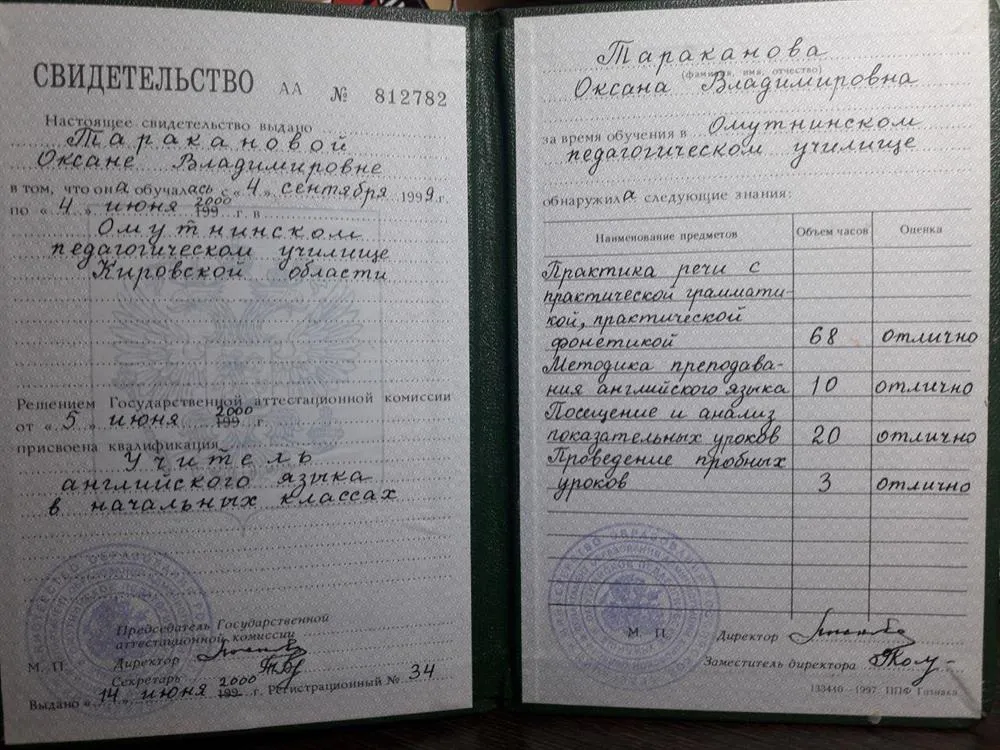 СВИДЕТЕЛЬСТВО АА № 812782
Настоящее свидетельство выдано
Таракановой
Оксане Владимировне
в том, что она обучалась с «4» сентября 1999 г.
по «4» июня 2000 199 г. в
Омутнинском
педагогическом училище
Кировской области
Решением Государственной аттестационной комиссии
от «5» июня 2000 199 г.
присвоена квалификация
Учитель
английского языка
в начальных классах
Председатель Государственной
аттестационной комиссии
М. П. Директор
Секретарь
Выдано «14» июня 2000 199 г. Регистрационный № 34
Тараканова
(фамилия, имя, отчество)
Оксана Владимировна
за время обучения в Омутнинском
педагогическом училище
обнаружила следующие знания:
Наименование предметов Объем часов Оценка
Практика речи с
практической граммати-
кой, практической
фонетикой 68 отлично
Методика преподава-
ния английского языка 10 отлично
Посещение и анализ
показательных уроков 20 отлично
Проведение пробных
уроков 3 отлично
М. П. Директор
Заместитель директора
133440—1997. ППФ Гознака